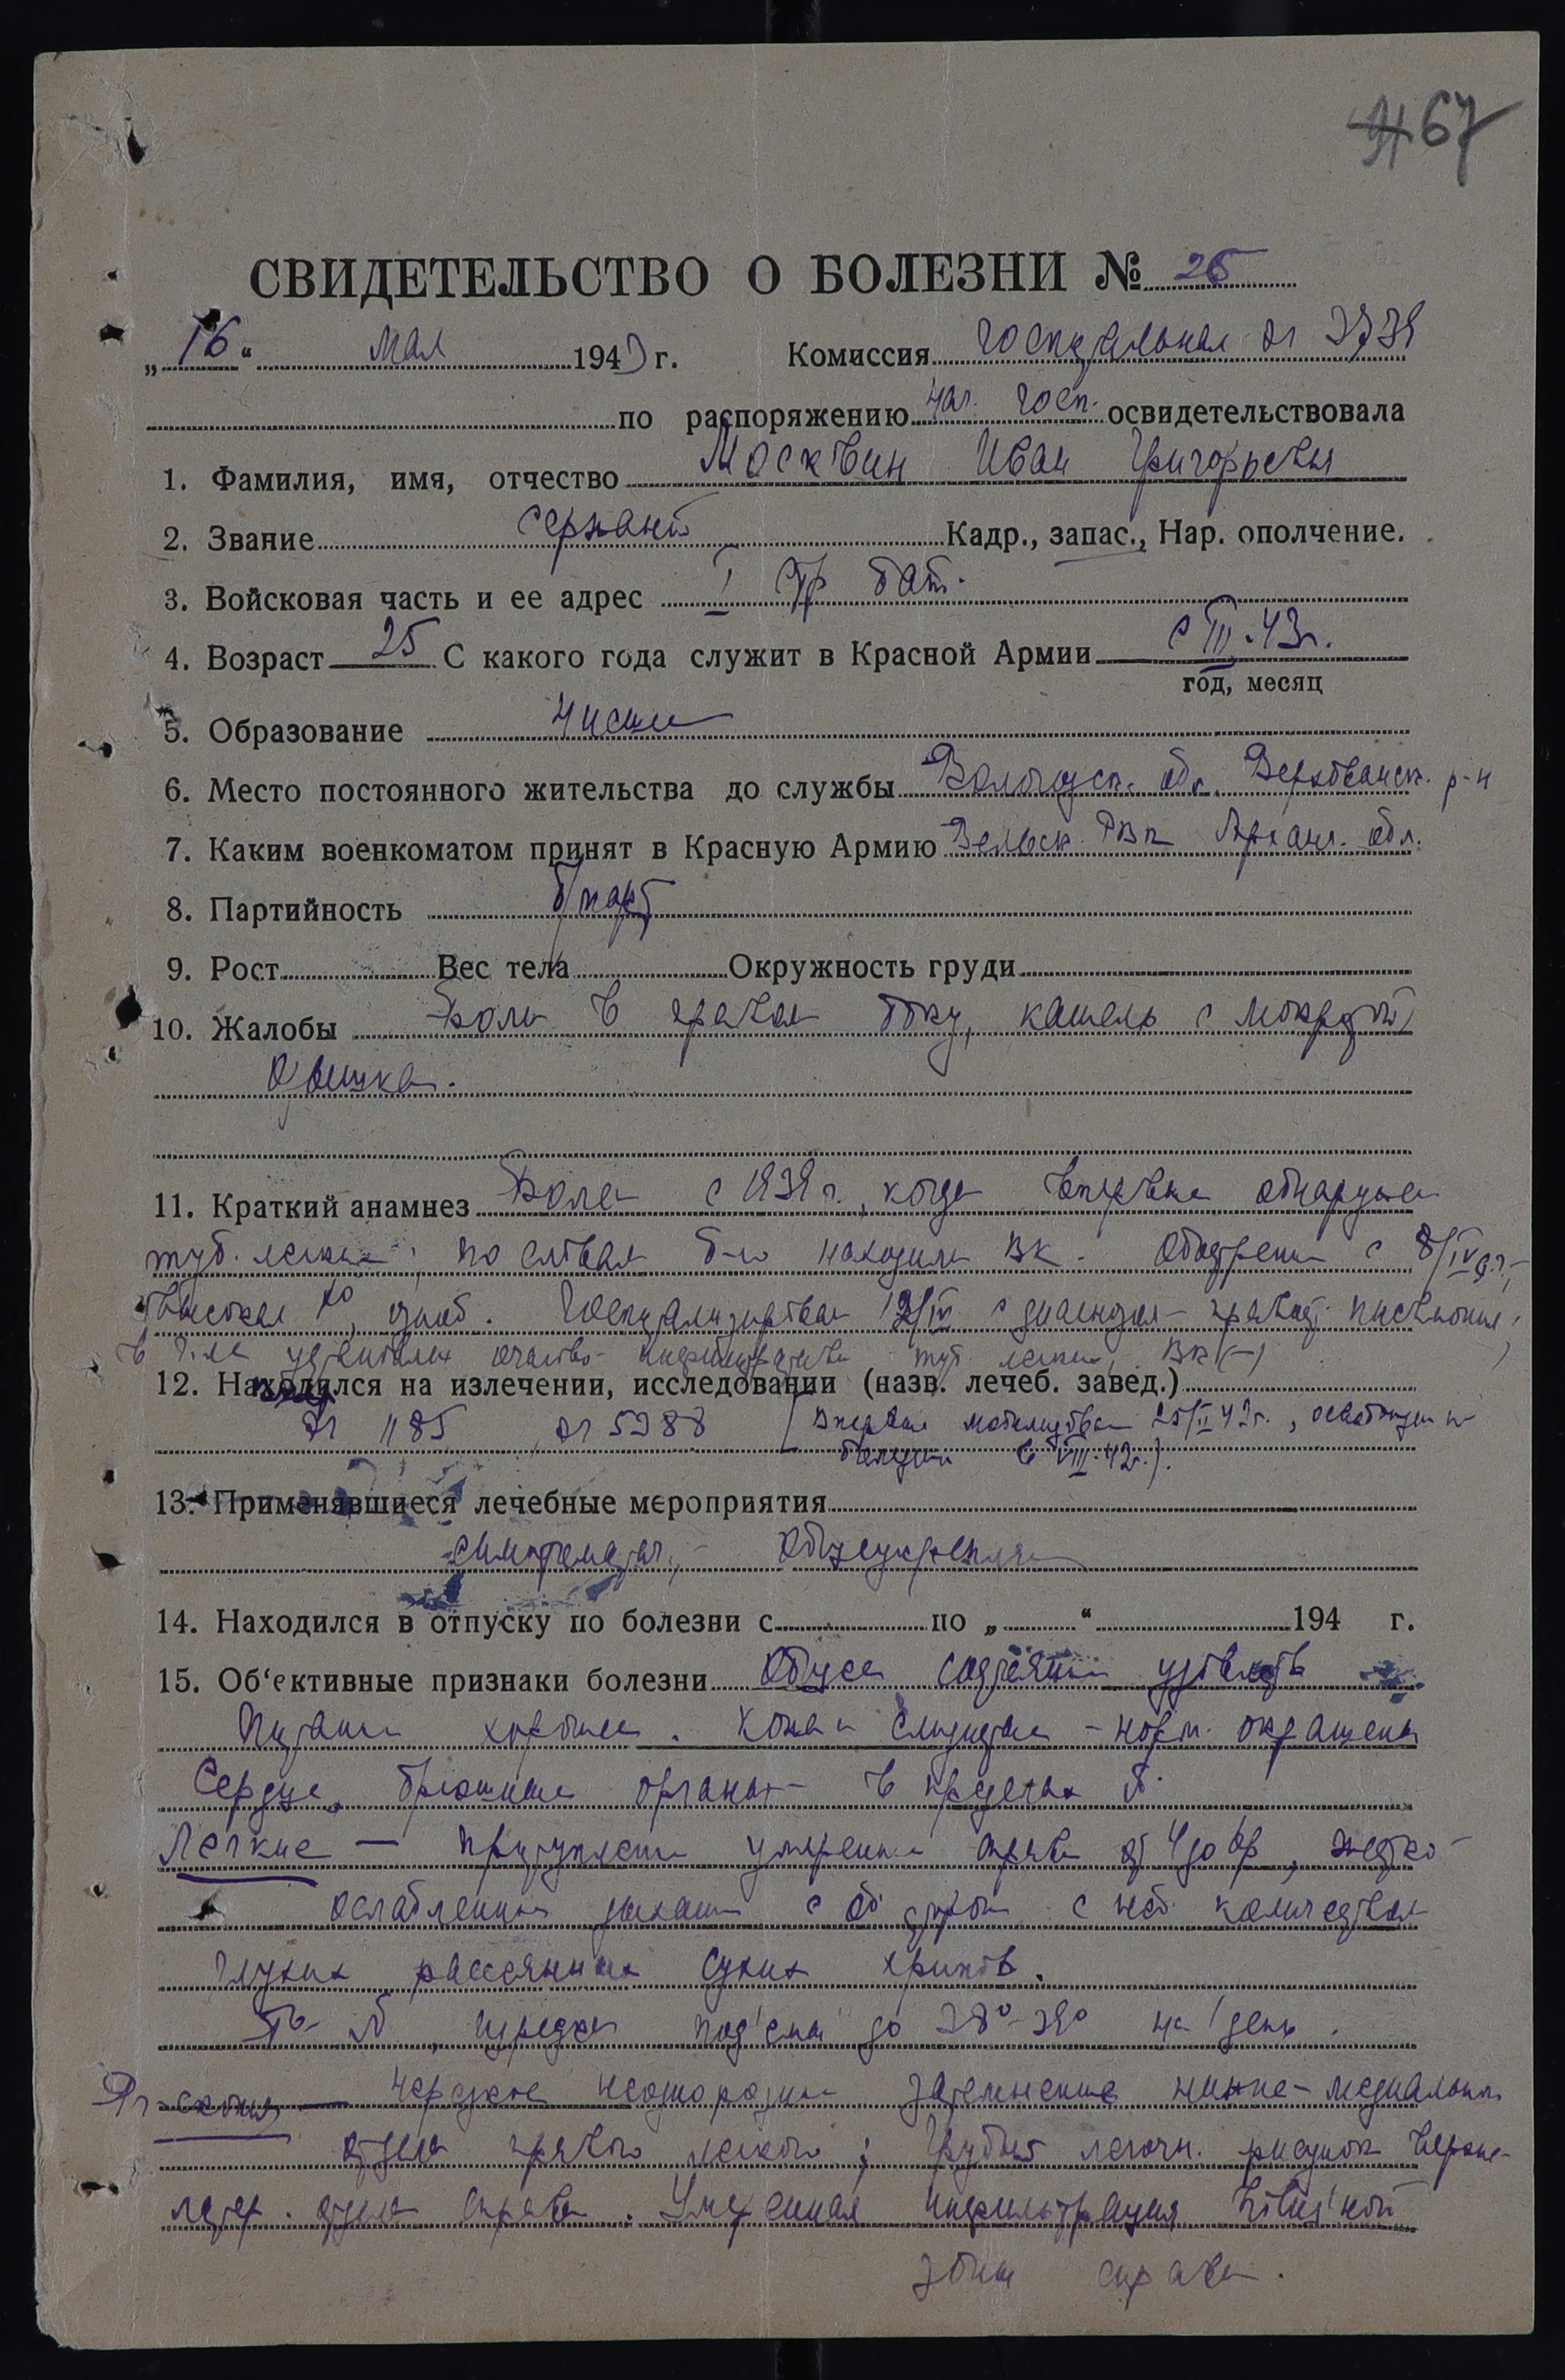 67
СВИДЕТЕЛЬСТВО О БОЛЕЗНИ № 25
„16“ мая 1943 г. Комиссия госпитальная ЭГ 3739
по распоряжению нач. госп. освидетельствовала
1. Фамилия, имя, отчество Москвин Иван Григорьевич
2. Звание сержант Кадр., запас., Нар. ополчение.
3. Войсковая часть и ее адрес I стр бат.
4. Возраст 25 С какого года служит в Красной Армии с III.43г.
год, месяц
5. Образование низшее
6. Место постоянного жительства до службы Вологодск. обл. Верховажск. р-н
7. Каким военкоматом принят в Красную Армию Вельск РВК Арханг. обл.
8. Партийность б/парт
9. Рост Вес тела Окружность груди
10. Жалобы Боли в правом боку, кашель с мокротой
одышка.
11. Краткий анамнез Болен с 1939 г., когда впервые обнаружен
туб. легких, по словам б-го находили ВК. Обострение с 8/IV
высокая to, озноб. Госпитализирован 12/IV с диагнозом
туб. легких, ВК (-)
12. Находился на излечении, исследовании (назв. лечеб. завед.)
ЭГ 1185, ЭГ 5388 (Впервые мобилизован 25/II 42г., освобожден по
болезни в VIII.42г.).
13. Применявшиеся лечебные мероприятия
симптоматич., общеукрепляющ
14. Находился в отпуску по болезни с по „ “ 194 г.
15. Об‘ективные признаки болезни Общее состояние удовлетв
Питание хорошее. Кожа и слизистые - норм. окрашены
Сердце, брюшные органы - в пределах N.
Легкие — притупление умеренное справа от 4 до 6р, жестко-
ослабленное дыхание с с неб. количеством
глухих рассеянных сухих хрипов.
То- N, изредка под'емы до 38°-39° на 1 день.
Rг-скопия — нерезкое неоднородное затемнение нижне-медиальн.
отдела правого легкого; грубый легочн. рисунок верхне-
латер. отдела справа. Умеренная инфильтрация hilus'ной
зоны справа.